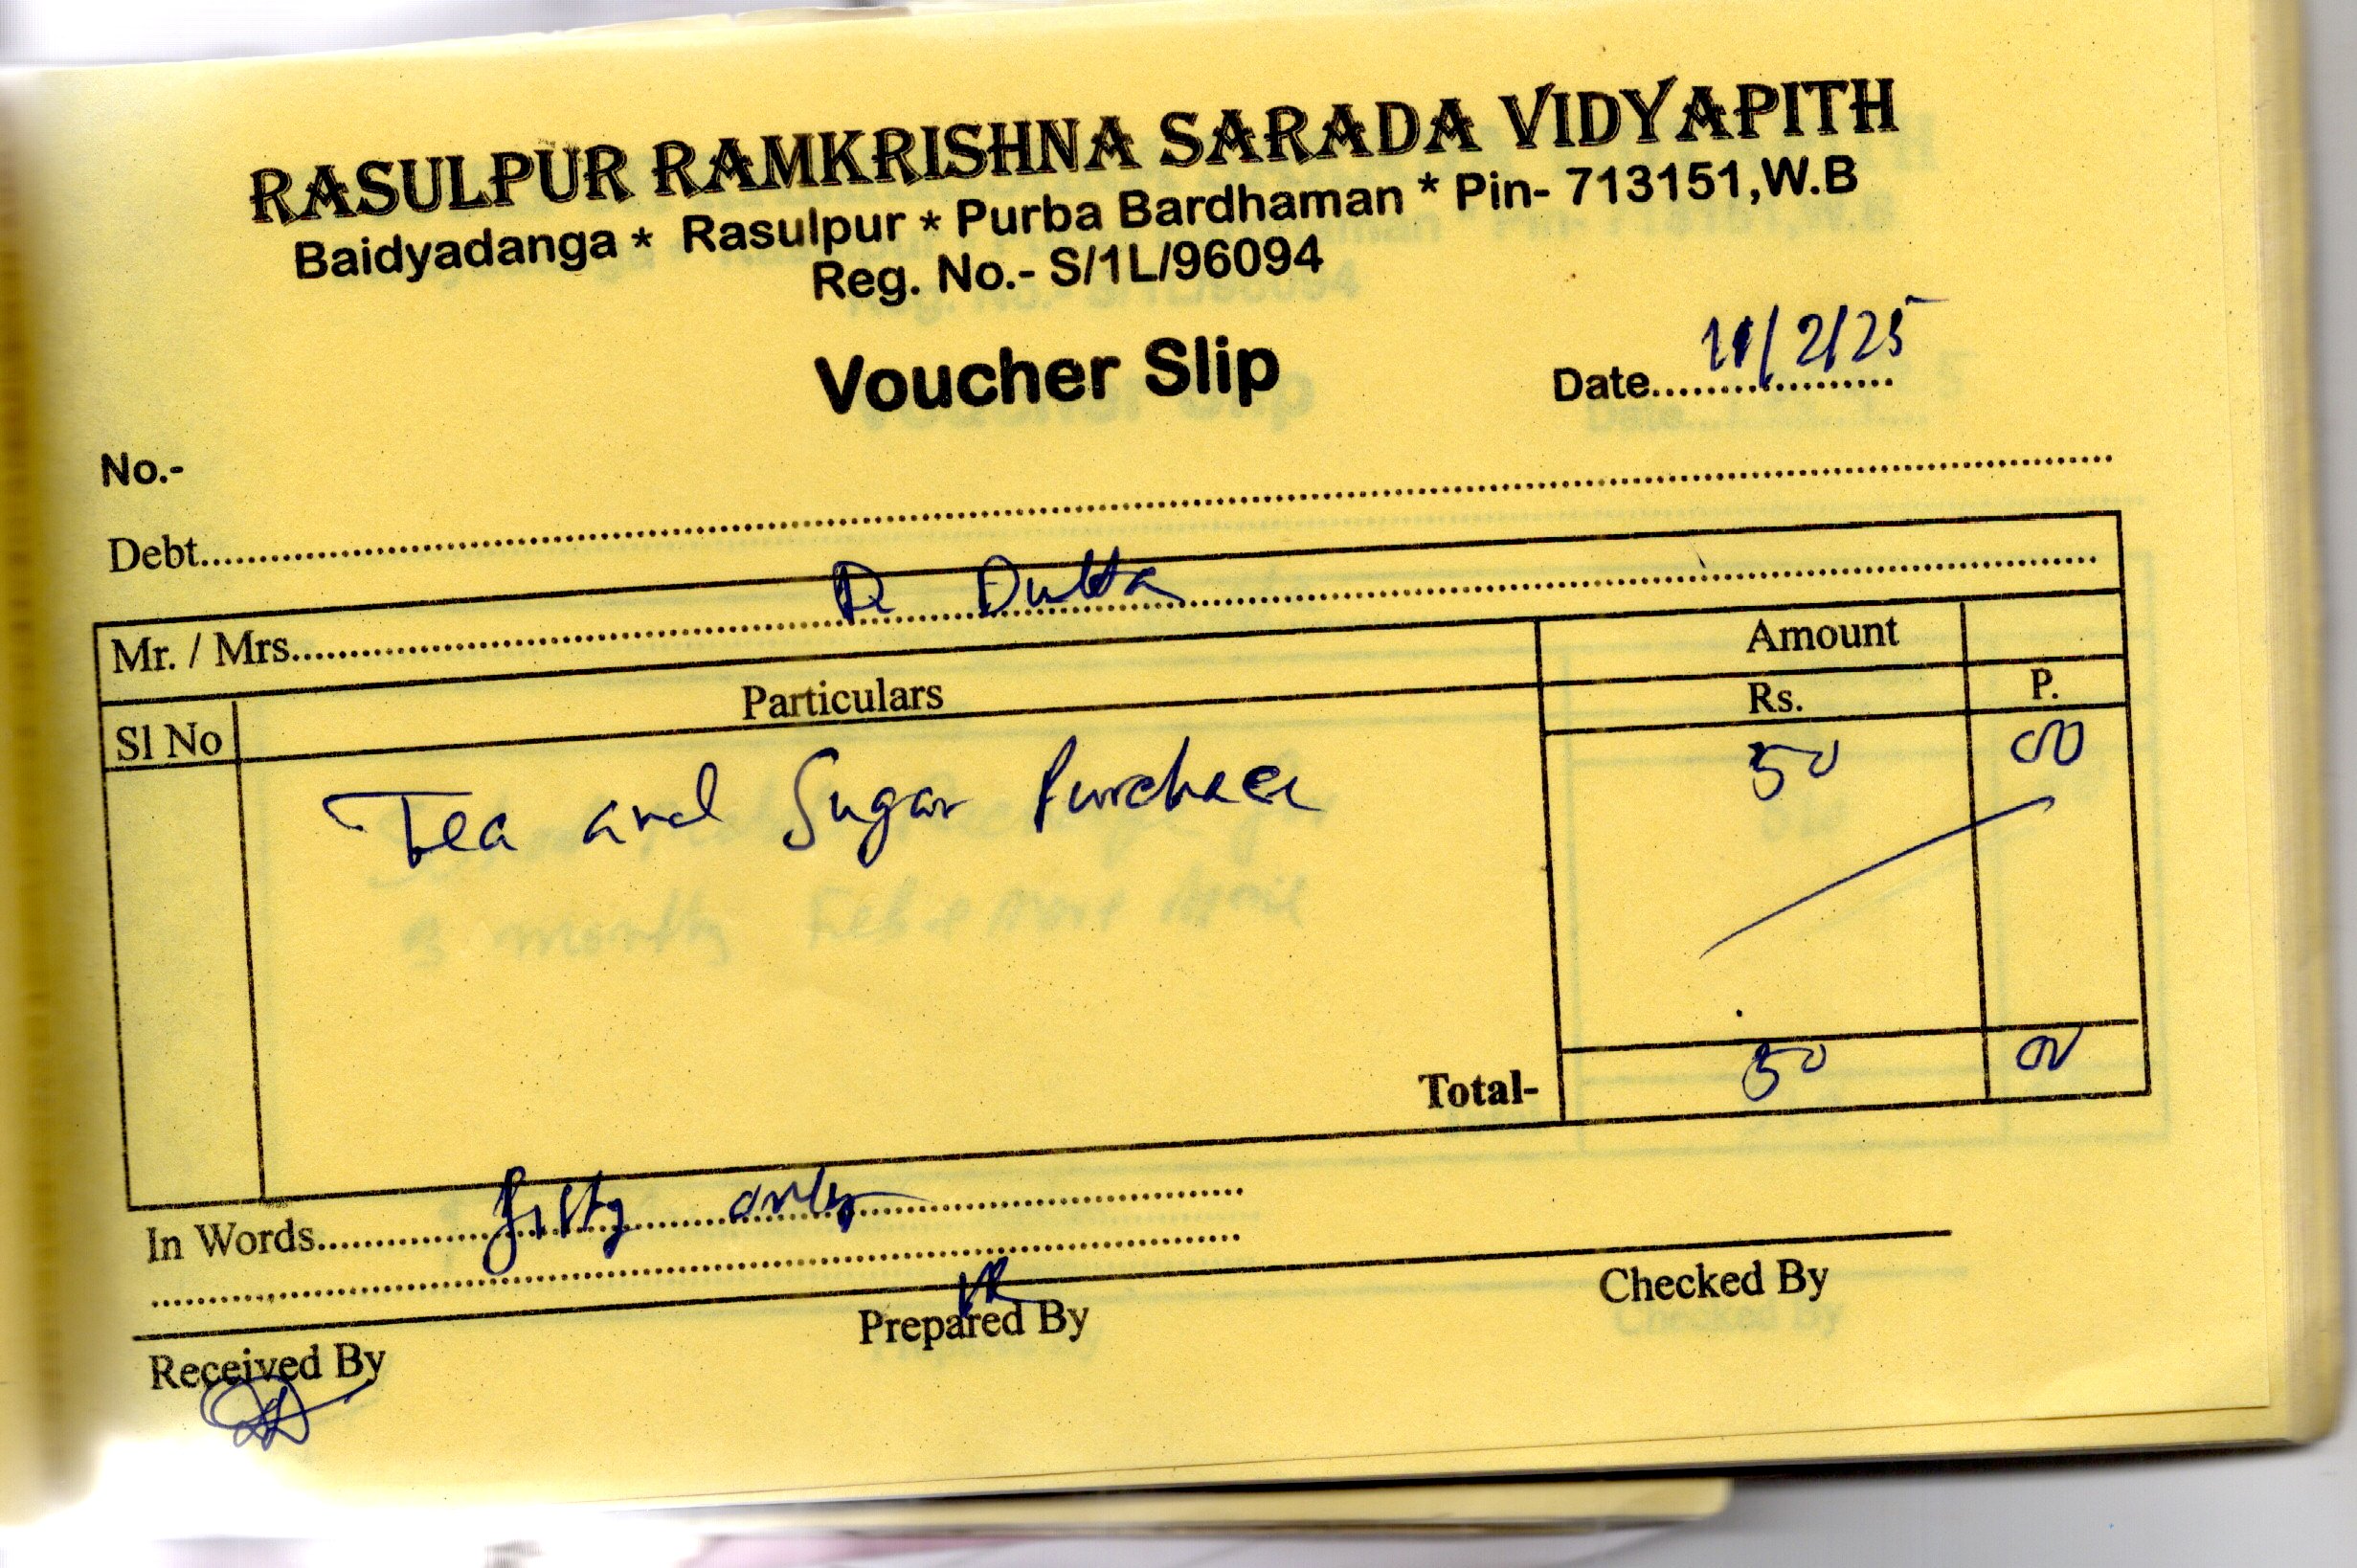 RASULPUR RAMKRISHNA SARADA VIDYAPITH
Baidyadanga * Rasulpur * Purba Bardhaman * Pin- 713151,W.B
Reg. No.- S/1L/96094
Voucher Slip
Date.................. /2/25
No.-
Debt..........
Mr. / Mrs.......... R Dutta
Sl No Particulars Amount
Rs. P.
Tea and Sugar Purchase 50 00
Total- 50 00
In Words.......... fifty only
Received By Prepared By Checked By